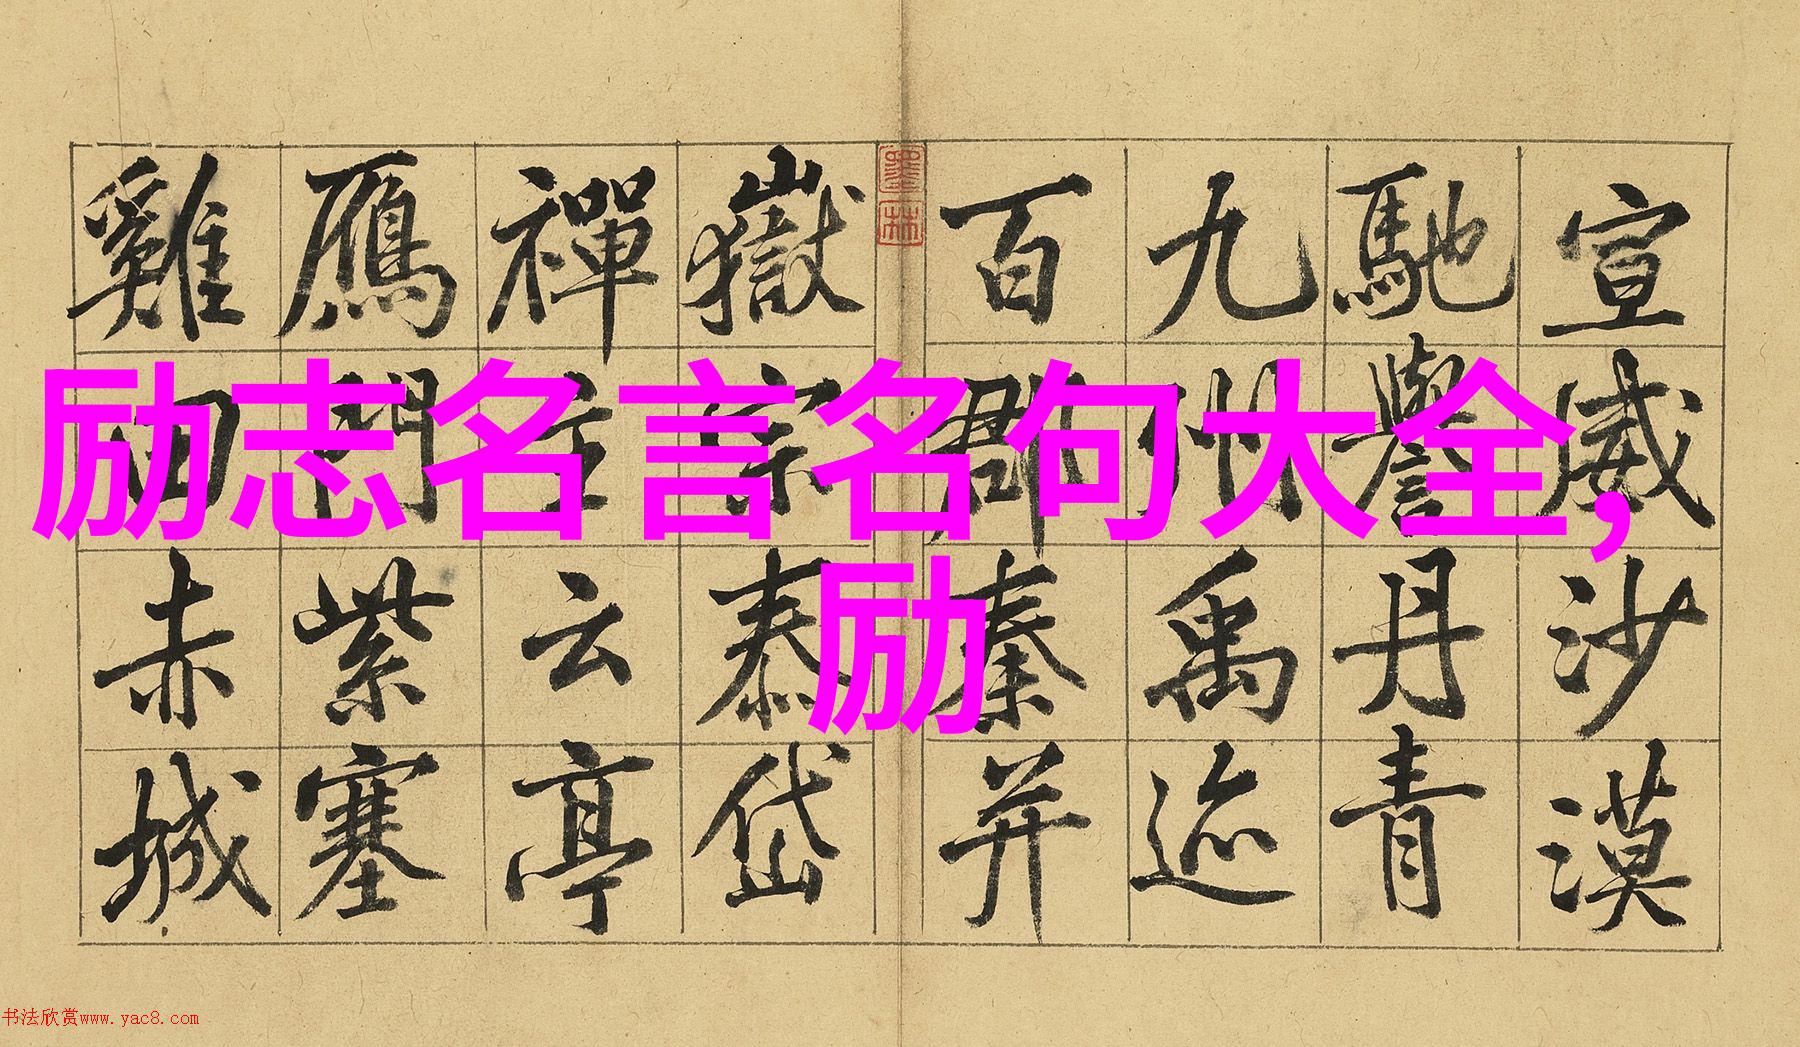 宣威沙漠
馳譽丹青
九州禹迹
百郡秦并
嶽宗泰岱
禪主云亭
鴈門紫塞
雞田赤城
墨林
励志名言名句大全,
励
书法欣赏www.yac8.com